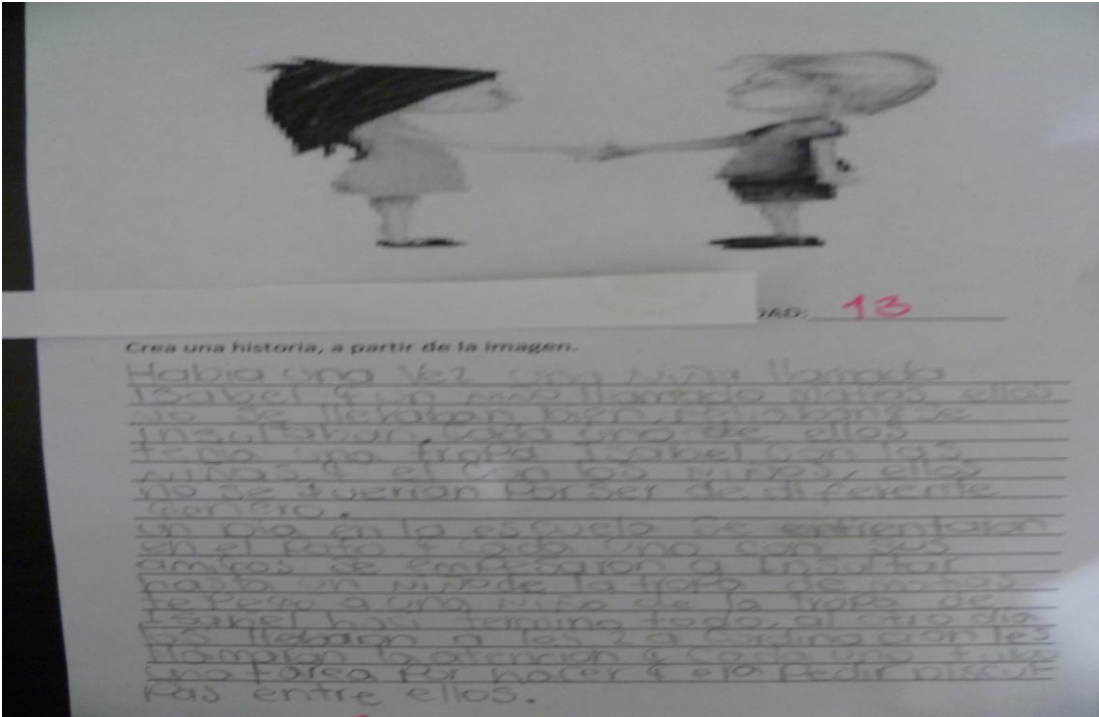 DAD: 13
Crea una historia, a partir de la imagen.
Habia una Vez una niña llamada
Isabel y un niño llamado Matias ellos
no se llevaban bien, se
insultaban, Cada uno de ellos
tenia una tropa Isabel con las
niñas y el con los niños, ellos
no se querian por ser de diferente
genero.
un Dia en la escuela se enfrentaron
en el Patio, y cada uno con sus
amigos se empesaron a Insultar
hasta un niño de la tropa de matias
le Pego a una niña de la tropa de
Isabel hasi termino todo, al otro dia
los llebaron a los 2 a cordinacion les
llamaron la atencion y cada uno tubo
una tarea por hacer y era Pedir Discul
pas entre ellos.